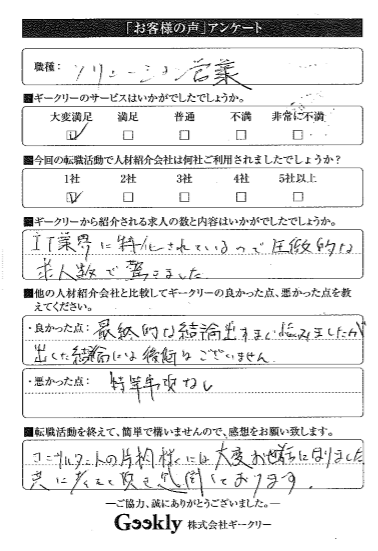 「お客様の声」アンケート
職種： ソリューション営業
■ギークリーのサービスはいかがでしたでしょうか。
大変満足 満足 普通 不満 非常に不満
☑ □ □ □ □
■今回の転職活動で人材紹介会社は何社ご利用されましたでしょうか？
1社 2社 3社 4社 5社以上
☑ □ □ □ □
■ギークリーから紹介される求人の数と内容はいかがでしたでしょうか。
IT業界に特化されているので圧倒的な
求人数で驚きました
■他の人材紹介会社と比較してギークリーの良かった点、悪かった点を教
えてください。
・良かった点： 最終的な結論出すまで悩みましたが
出した結論には後悔はございません
・悪かった点： 特筆事項なし
■転職活動を終えて、簡単で構いませんので、感想をお願い致します。
コンサルタントの片桐様には大変お世話になりました
共に考えて頂き感謝しております。
―ご協力、誠にありがとうございました。―
Geekly 株式会社ギークリー